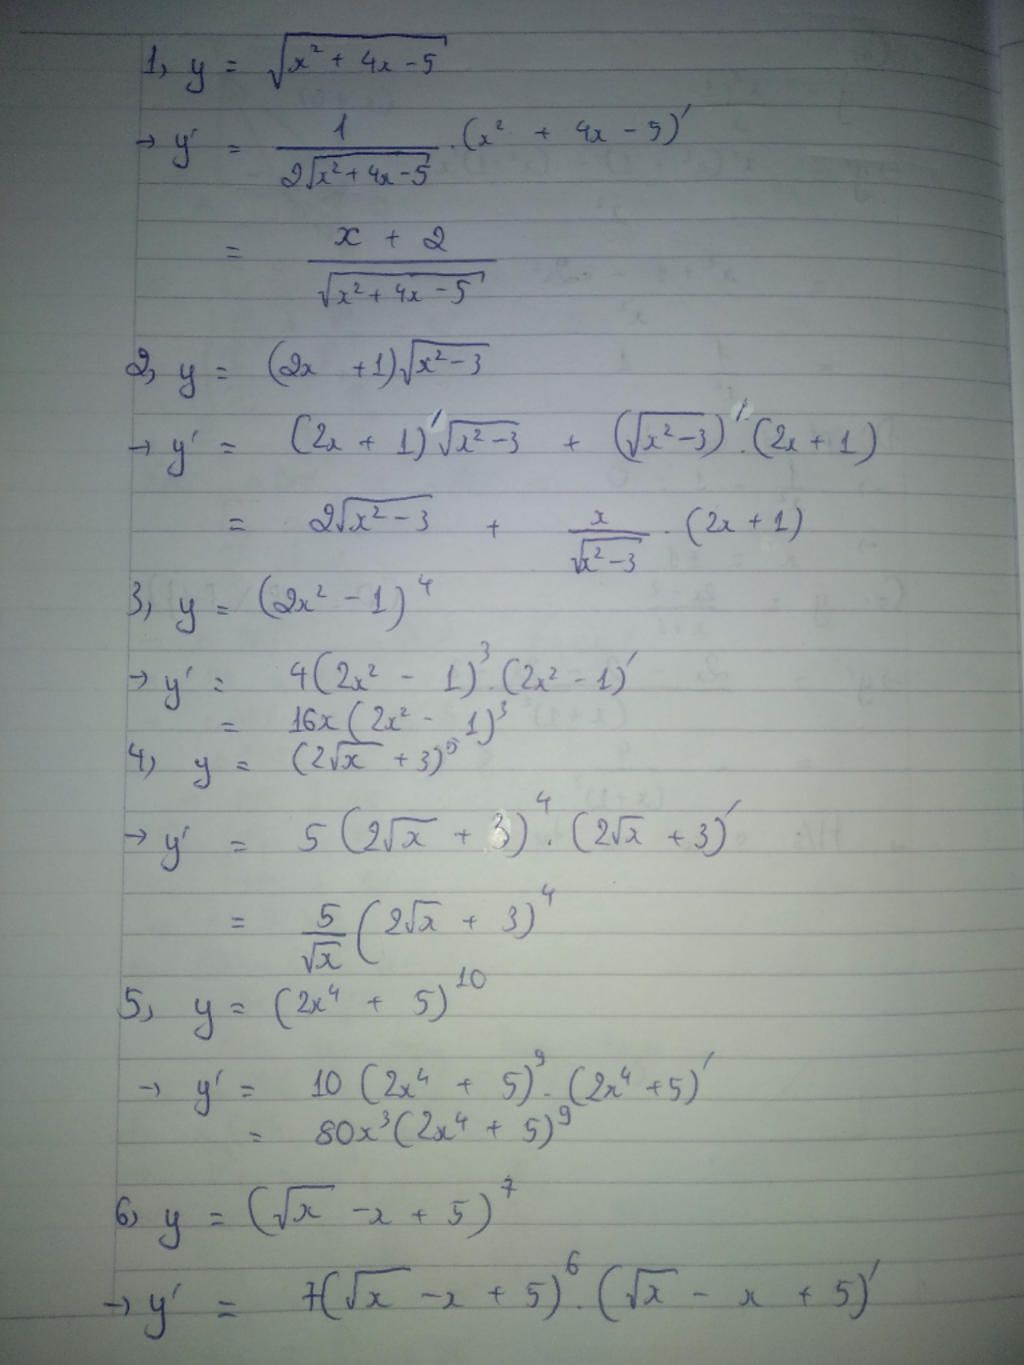 1, y = √(x² + 4x - 5)
→ y' = 1/(2√(x² + 4x - 5)) . (x² + 4x - 5)'
= (x + 2)/√(x² + 4x - 5)
2, y = (2x + 1)√(x² - 3)
→ y' = (2x + 1)'√(x² - 3) + (√(x² - 3))' . (2x + 1)
= 2√(x² - 3) + x/√(x² - 3) . (2x + 1)
3, y = (2x² - 1)⁴
→ y' = 4(2x² - 1)³ . (2x² - 1)'
= 16x(2x² - 1)³
4, y = (2√x + 3)⁵
→ y' = 5(2√x + 3)⁴ . (2√x + 3)'
= 5/√x (2√x + 3)⁴
5, y = (2x⁴ + 5)¹⁰
→ y' = 10(2x⁴ + 5)⁹ . (2x⁴ + 5)'
= 80x³(2x⁴ + 5)⁹
6, y = (√x - x + 5)⁷
→ y' = 7(√x - x + 5)⁶ . (√x - x + 5)'